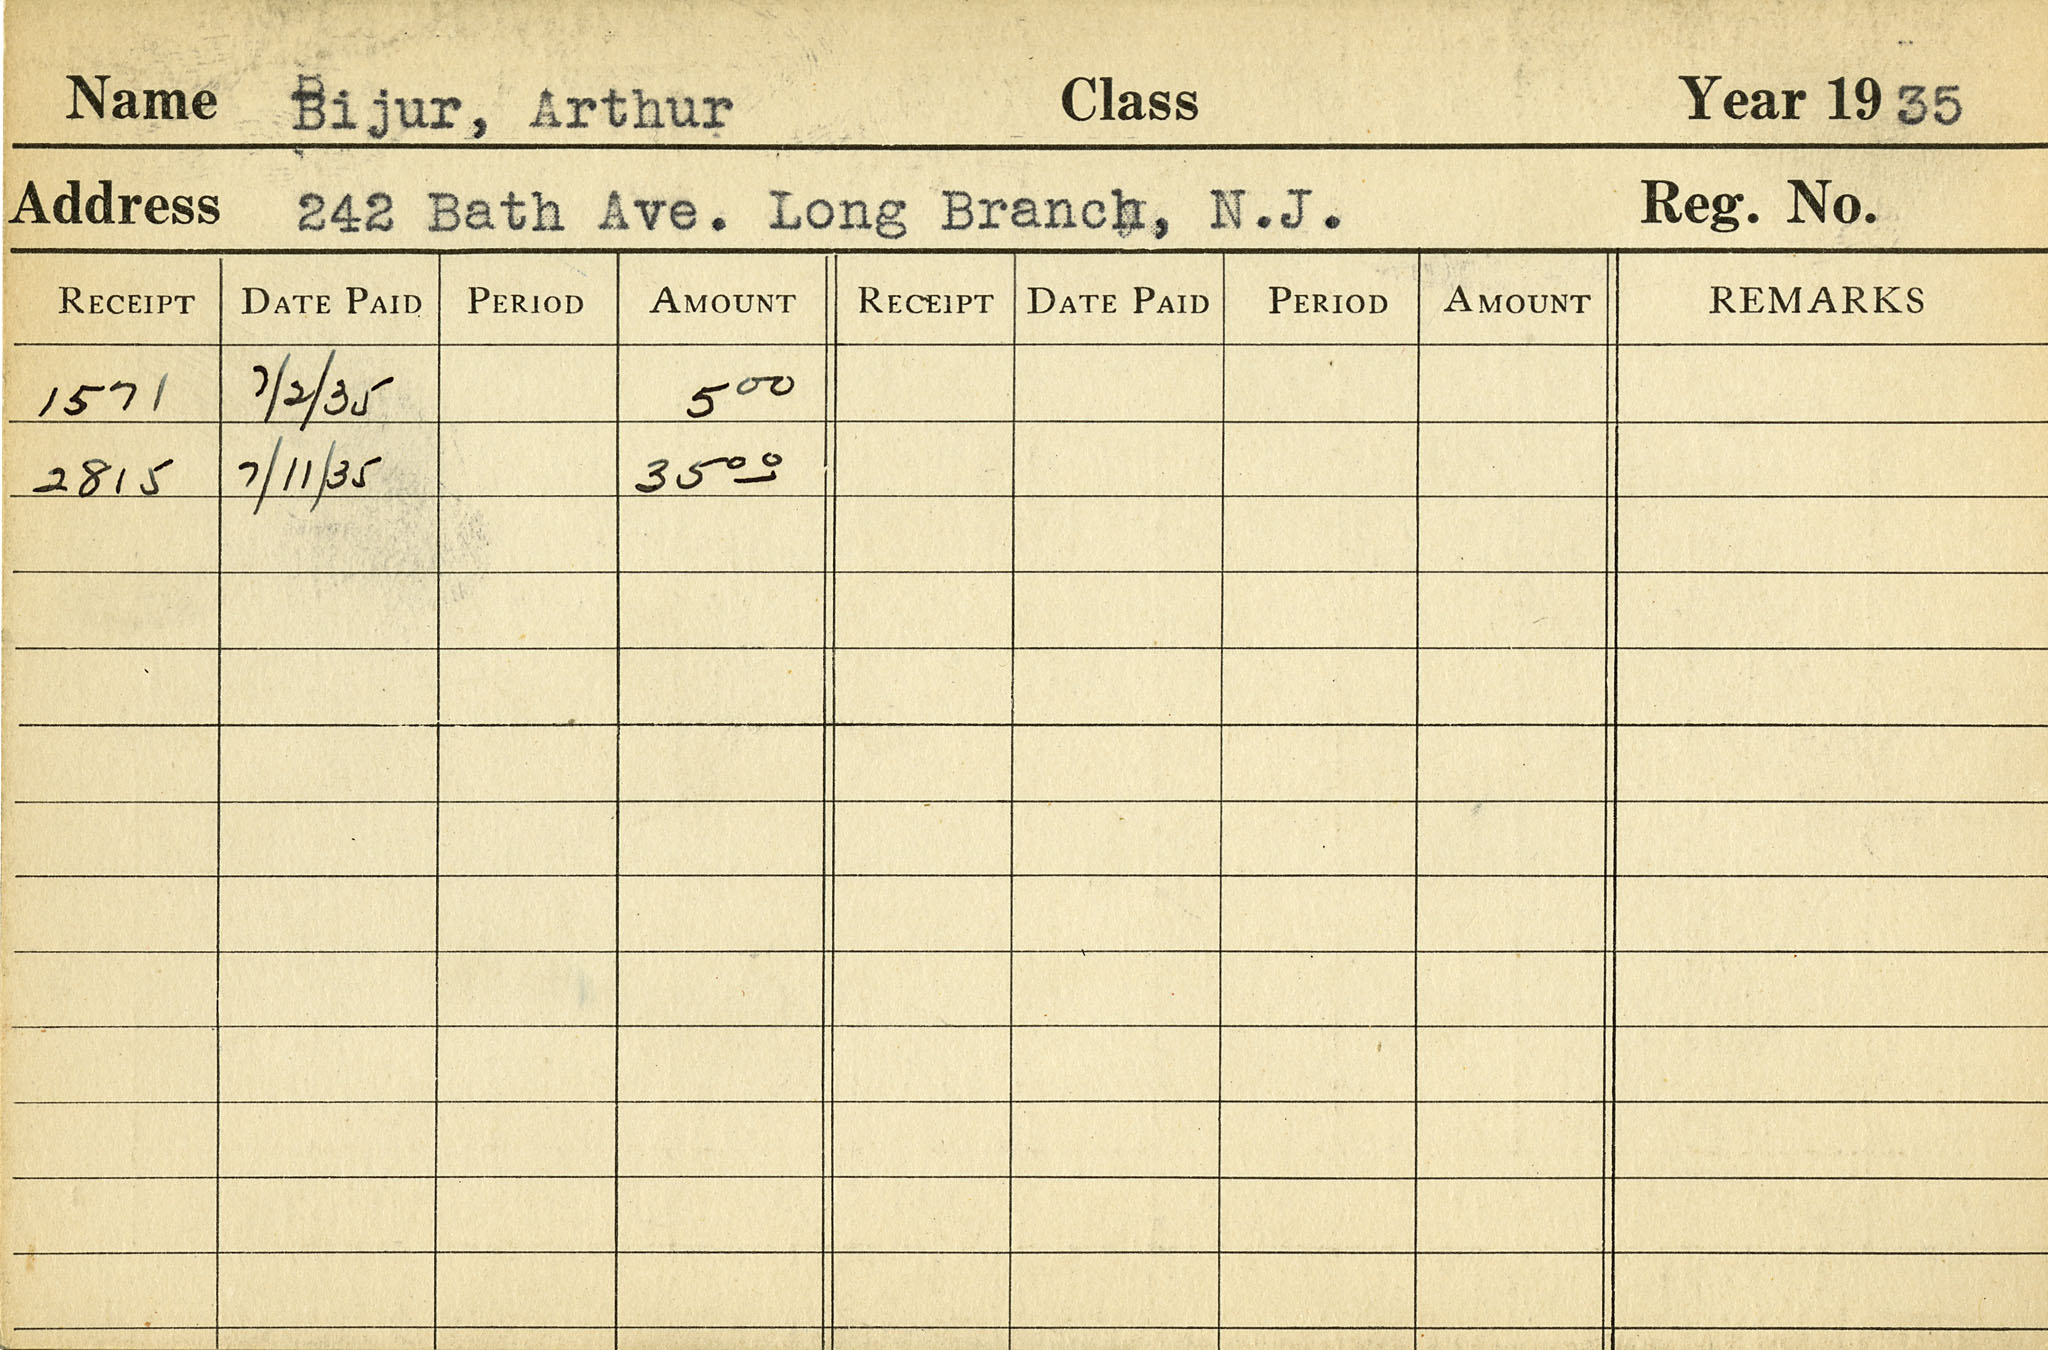 Name Bijur, Arthur Class Year 1935
Address 242 Bath Ave. Long Branch, N.J. Reg. No.
RECEIPT DATE PAID PERIOD AMOUNT RECEIPT DATE PAID PERIOD AMOUNT REMARKS
1571 7/2/35 5 00
2815 7/11/35 35 00